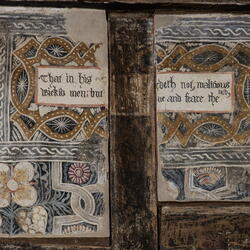 That in his
wicked men: but
edeth not, malicious
ve and feare the